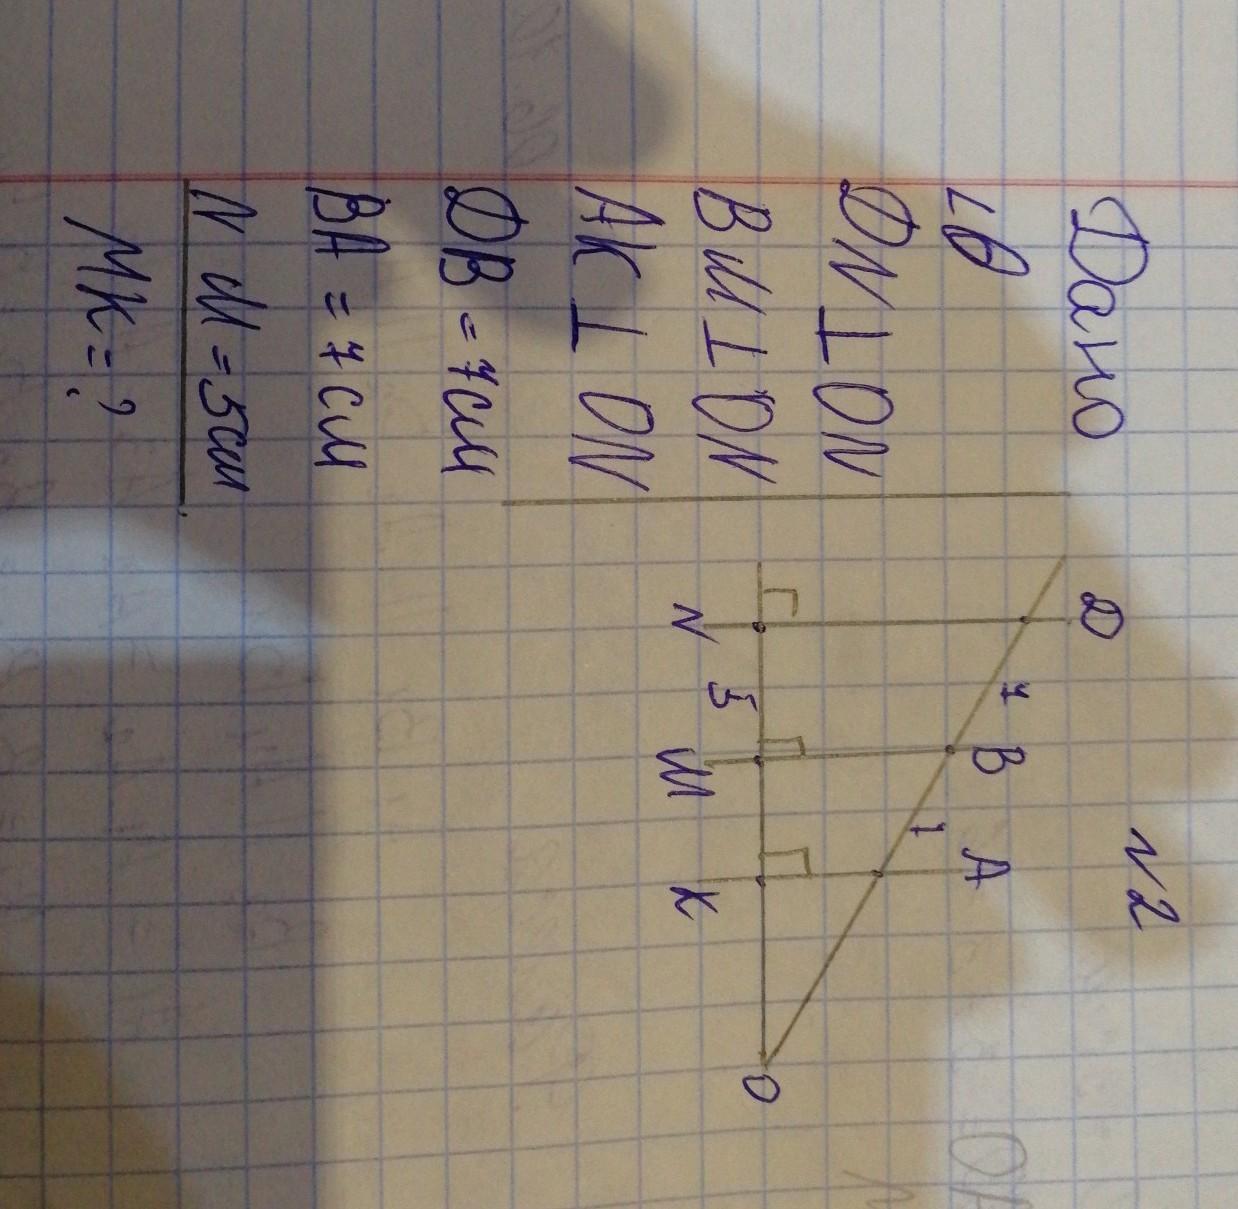 N2
Дано
∠O
DN ⊥ ON
BM ⊥ ON
AK ⊥ ON
DB = 7см
BA = 7см
N M = 5см
MK = ?
D
7
B
1
A
N
5
M
K
O